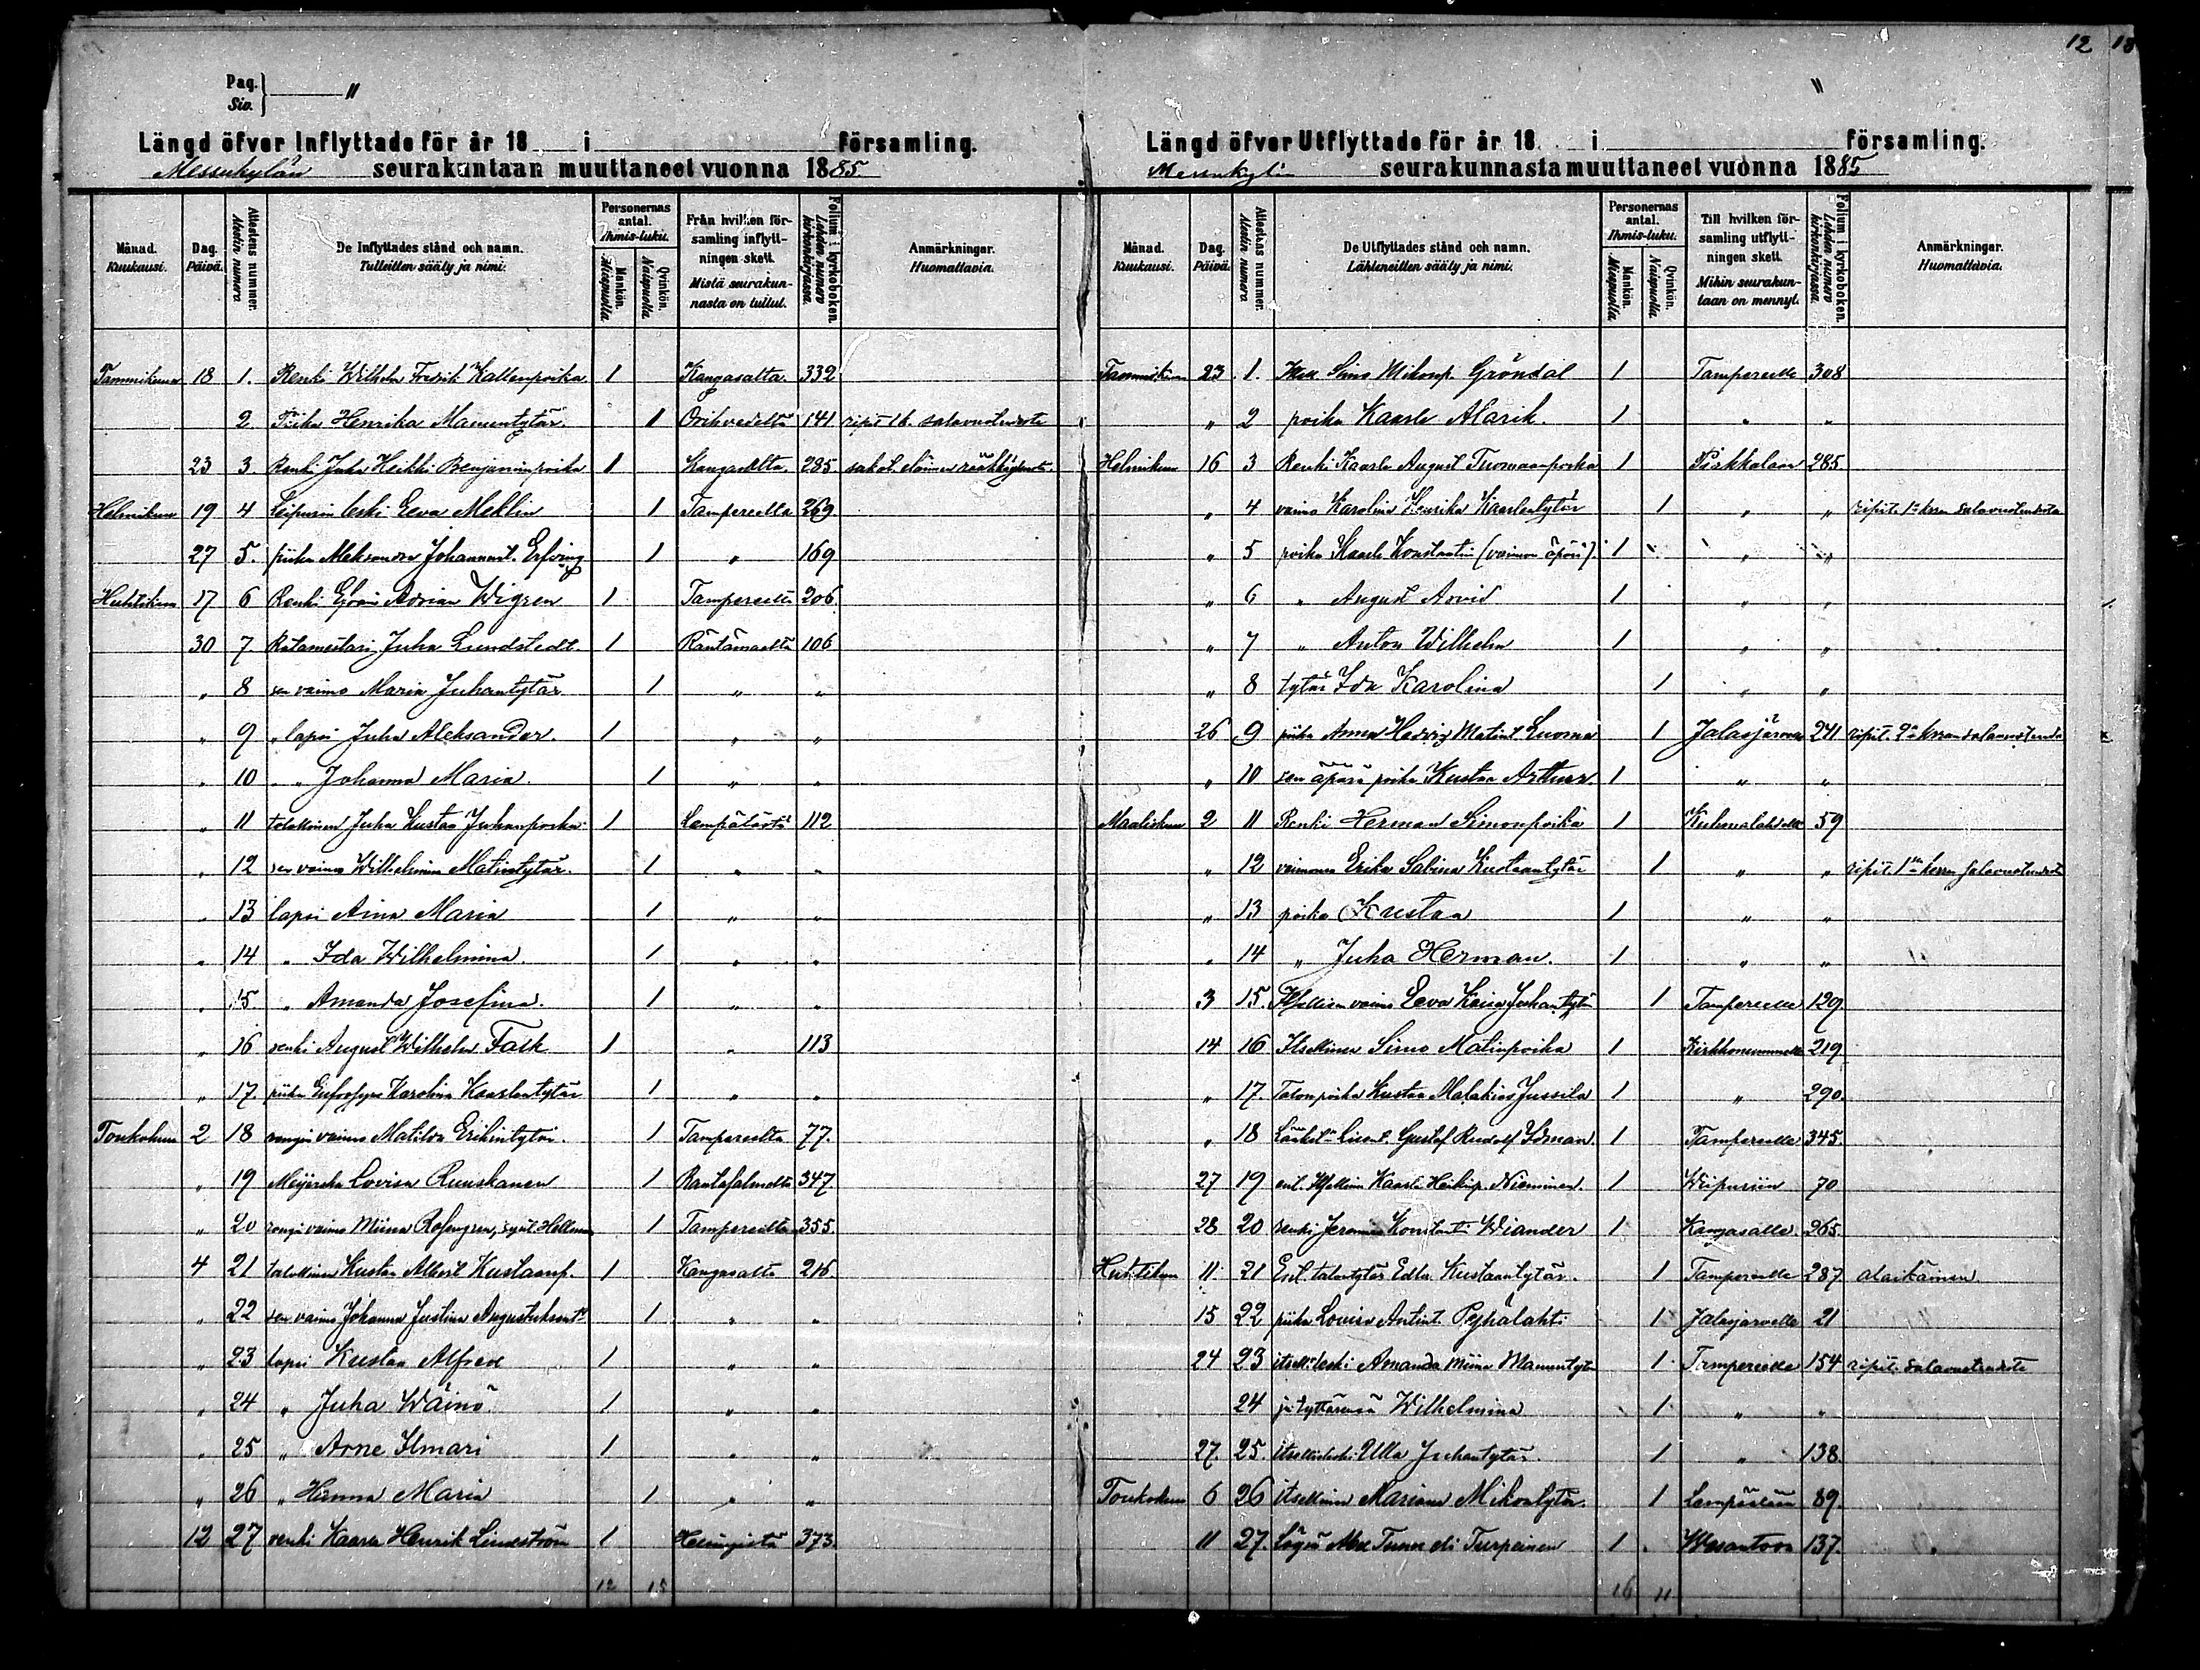 12 18
Pag.
Siv. "
Längd öfver Inflyttade för år 18 i församling.
Messukylän seurakuntaan muuttaneet vuonna 1885
Månad. Kuukausi. Dag. Päivä. Attestens nummer. Nestin numero De Inflyttades stånd och namn. Tulleitten sääty ja nimi. Personernas antal. Ihmis-luku. Mankön. Miespuolia Qvinkön. Naispuolia Från hvilken församling inflyttningen skett. Mistä seurakunnasta on tullut. Folium i kyrkoboken. Lehden numero kirkonkirjassa. Anmärkningar. Huomattavia.
Tammikuu 18 1. Renki Wilhelm Fredrik Kallenpoika 1 Kangasalta 332
2. Piika Henrika Mamentytär 1 Orihvedeltä 141 ripit. 16. salavuoteudesta
23 3. Renki Juha Heikki Benjaminpoika 1 Kangasalta 285
Helmikuu 19 4 Leipurin leski Eeva Meklin 1 Tampereelta 269
27 5. piika Aleksandra Johannant. Erfving 1 " 169
Huhtikuu 17 6 Renki Adrian Wigren 1 Tampereelta 206
30 7 Ratamestari Juha Lundstedt 1 Räntämäeltä 106
" 8 sen vaimo Maria Juhantytär 1 " "
" 9 " lapsi Juha Aleksander. 1 " "
" 10 " " Johanna Maria. 1 " "
" 11 talokkinen Juha Kustaa Juhanpoika 1 Lempäälästä 112
" 12 sen vaimo Wilhelmina Matintytär. 1 " "
" 13 lapsi Aina Maria 1 " "
" 14 " Ida Wilhelmina 1 " "
" 15. " Amanda Josefina. 1 " "
" 16 renki August Wilhelm Falk 1 " 113
" 17. piika Eufrosyne Karolina Kaarlentytär 1 " "
Toukokuu 2 18 rengin vaimo Matilda Erikintytär. 1 Tampereelta 77.
" 19 Meijerska Lovisa Ruuskanen 1 Rantasalmelta 347
" 20 rengin vaimo Miina Rosengren, synt. Hellman 1 Tampereelta 355.
4 21 talokkinen Kustaa Albert Kustaanp. 1 Kangasalta 216.
" 22 sen vaimo Johanna Justina 1 " "
" 23 lapsi Kustaa Alfred 1 " "
" 24 " Juha Wäinö 1 " "
" 25 " Arne Ilmari 1 " "
" 26 " Hanna Maria 1 " "
12 27 renki Kaarle Henrik Lindström 1 Helsingistä 373.
12 15
"
Längd öfver Utflyttade för år 18 i församling.
Messukylän seurakunnasta muuttaneet vuonna 1885
Månad. Kuukausi. Dag. Päivä. Attestens nummer. Nestin numero De Utflyttades stånd och namn. Lähteneitten sääty ja nimi. Personernas antal. Ihmis-luku. Mankön. Miespuolia Qvinkön. Naispuolia Till hvilken församling utflyttningen skett. Mihin seurakuntaan on mennyt. Folium i kyrkoboken. Lehden numero kirkonkirjassa. Anmärkningar. Huomattavia.
Tammikuu 23 1. Simo Mikonp. Gröndal 1 Tampereelle 308
" 2 poika Kaarle Alarik. 1 " "
Helmikuu 16 3 Renki Kaarle August Tuomaanpoika 1 Pirkkalaan 285
" 4 vaimo Karolina Henrika Kaarlentytär 1 " " ripit. 1n kerran salavuoteudesta
" 5 poika Kaarle Konstantin (vaimon äpärä). 1 " "
" 6 " August Arvid 1 " "
" 7 " Anton Wilhelm 1 " "
" 8 tytär Ida Karolina 1 " "
26 9 piika Anna Hedvig Matint. Luoma 1 Jalasjärvelle 241 ripit. 2n kerran salavuoteudesta
" 10 sen äpärä poika Kustaa Artturi 1 " "
Maaliskuu 2 11 Renki Herman Simonpoika 1 Kuhmalahdelle 59
" 12 vaimonsa Erika Sabina Kustaantytär 1 " " ripit. 1n kerran salavuoteudesta
" 13 poika Kustaa 1 " "
" 14 " Juha Herman. 1 " "
3 15. Itsellisen vaimo Eeva Kaisa Juhantytär 1 Tampereelle 129.
14 16 Itsellinen Simo Matinpoika 1 Kirkkonummelle 219
" 17. Talonpoika Kustaa Malakias Jussila 1 " 290.
" 18 Gustaf Rudolf Idman. 1 Tampereelle 345.
27 19 ent. Itsellinen Kaarle Heikinp. Nieminen. 1 Wiipuriin 70
28 20 renki Jeremias Konstanti Wiander 1 Kangasalle 265.
Huhtikuu 11 21 Ent. talontytär Edla Kustaantytär. 1 Tampereelle 287 alaikäinen
15 22 piika Lovisa Antint. Pyhälahti 1 Jalasjärvelle 21
24 23 itsell. leski Amanda Miina Mamentytär 1 Tampereelle 154 ripit. salavuoteudesta
24 ja tyttärensä Wilhelmina 1 " "
27. 25. itsellisleski Ulla Juhantytär. 1 " 138.
Toukokuu 6 26 itsellinen Mariana Mikontytär. 1 Lempäälään 89.
11 27. Turpeinen 1 137.
16 11